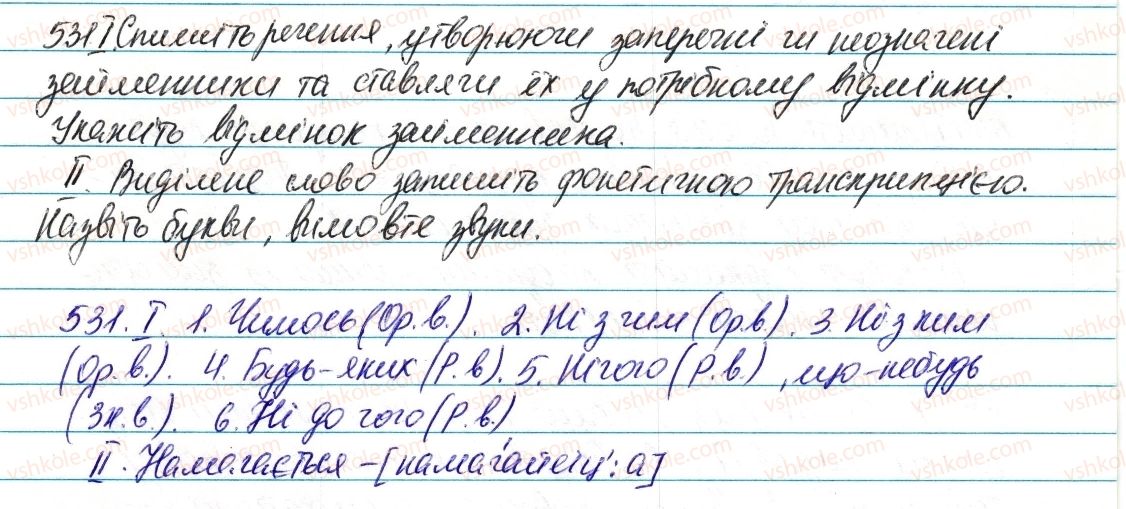 531 I Спишіть речення, утворюючи заперечні чи неозначені
займенники та ставлячи їх у потрібному відмінку.
Укажіть відмінок займенника.
II. Виділене слово запишіть фонетичною транскрипцією.
Назвіть букви, вимовте звуки.
531. I. 1. Чимось (Ор.в.). 2. Ні з чим (Ор.в.). 3. Ні з ким
(Ор.в.). 4. Будь-яких (Р.в). 5. Нічого (Р.в.), що-небудь
(Зн.в.). 6. Ні до чого (Р.в.)
II. Намагається – [намага́йеіц':а]